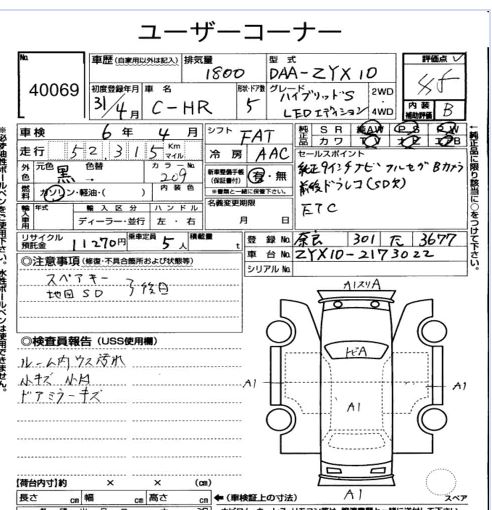 ユーザーコーナー
No. 40069
車歴 (自家用以外は記入)
排気量 1800
型式 DAA-ZYX10
評価点
初度登録年月 31年4月
車名 C-HR
形状・ドア数 5
グレード ハイブリッドS LEDエディション
2WD
4WD
内装補助評価 B
車検 6年 4月
シフト FAT
純正品 SR AW PS PW
カワ TV ナビ エアB
走行 52,315 Km マイル
冷房 AAC
セールスポイント
純正9インチナビ フルセグ Bカメラ
前後ドラレコ(SD欠)
ETC
外色 元色 黒 色替
カラーNo. 209
新車整備手帳(保証書付) 有・無
※書類と一緒に保管下さい。
燃料 ガソリン・軽油・( )
内装色
名義変更期限 月 日
輸入車用 年式 輸入区分 ハンドル
ディーラー・並行 左・右
リサイクル預託金 11270円
乗車定員 5人
積載量 t
登録No. 奈良 301 て 3677
車台No. ZYX10-2173022
シリアルNo.
◎注意事項 (修復・不具合箇所および状態等)
スペアキー
地図SD
予後日
◎検査員報告 (USS使用欄)
ルーム内ウス汚れ
小キズ 小凹
ドアミラーキズ
A1スリA
トビA
A1
A1
A1
A1
スペア
【荷台内寸】約 × × (cm)
長さ cm 幅 cm 高さ cm
←(車検証上の寸法)
←純正品に限り該当に○をつけて下さい。
※必ず油性ボールペンをご使用下さい。水性ボールペンは使用できません。